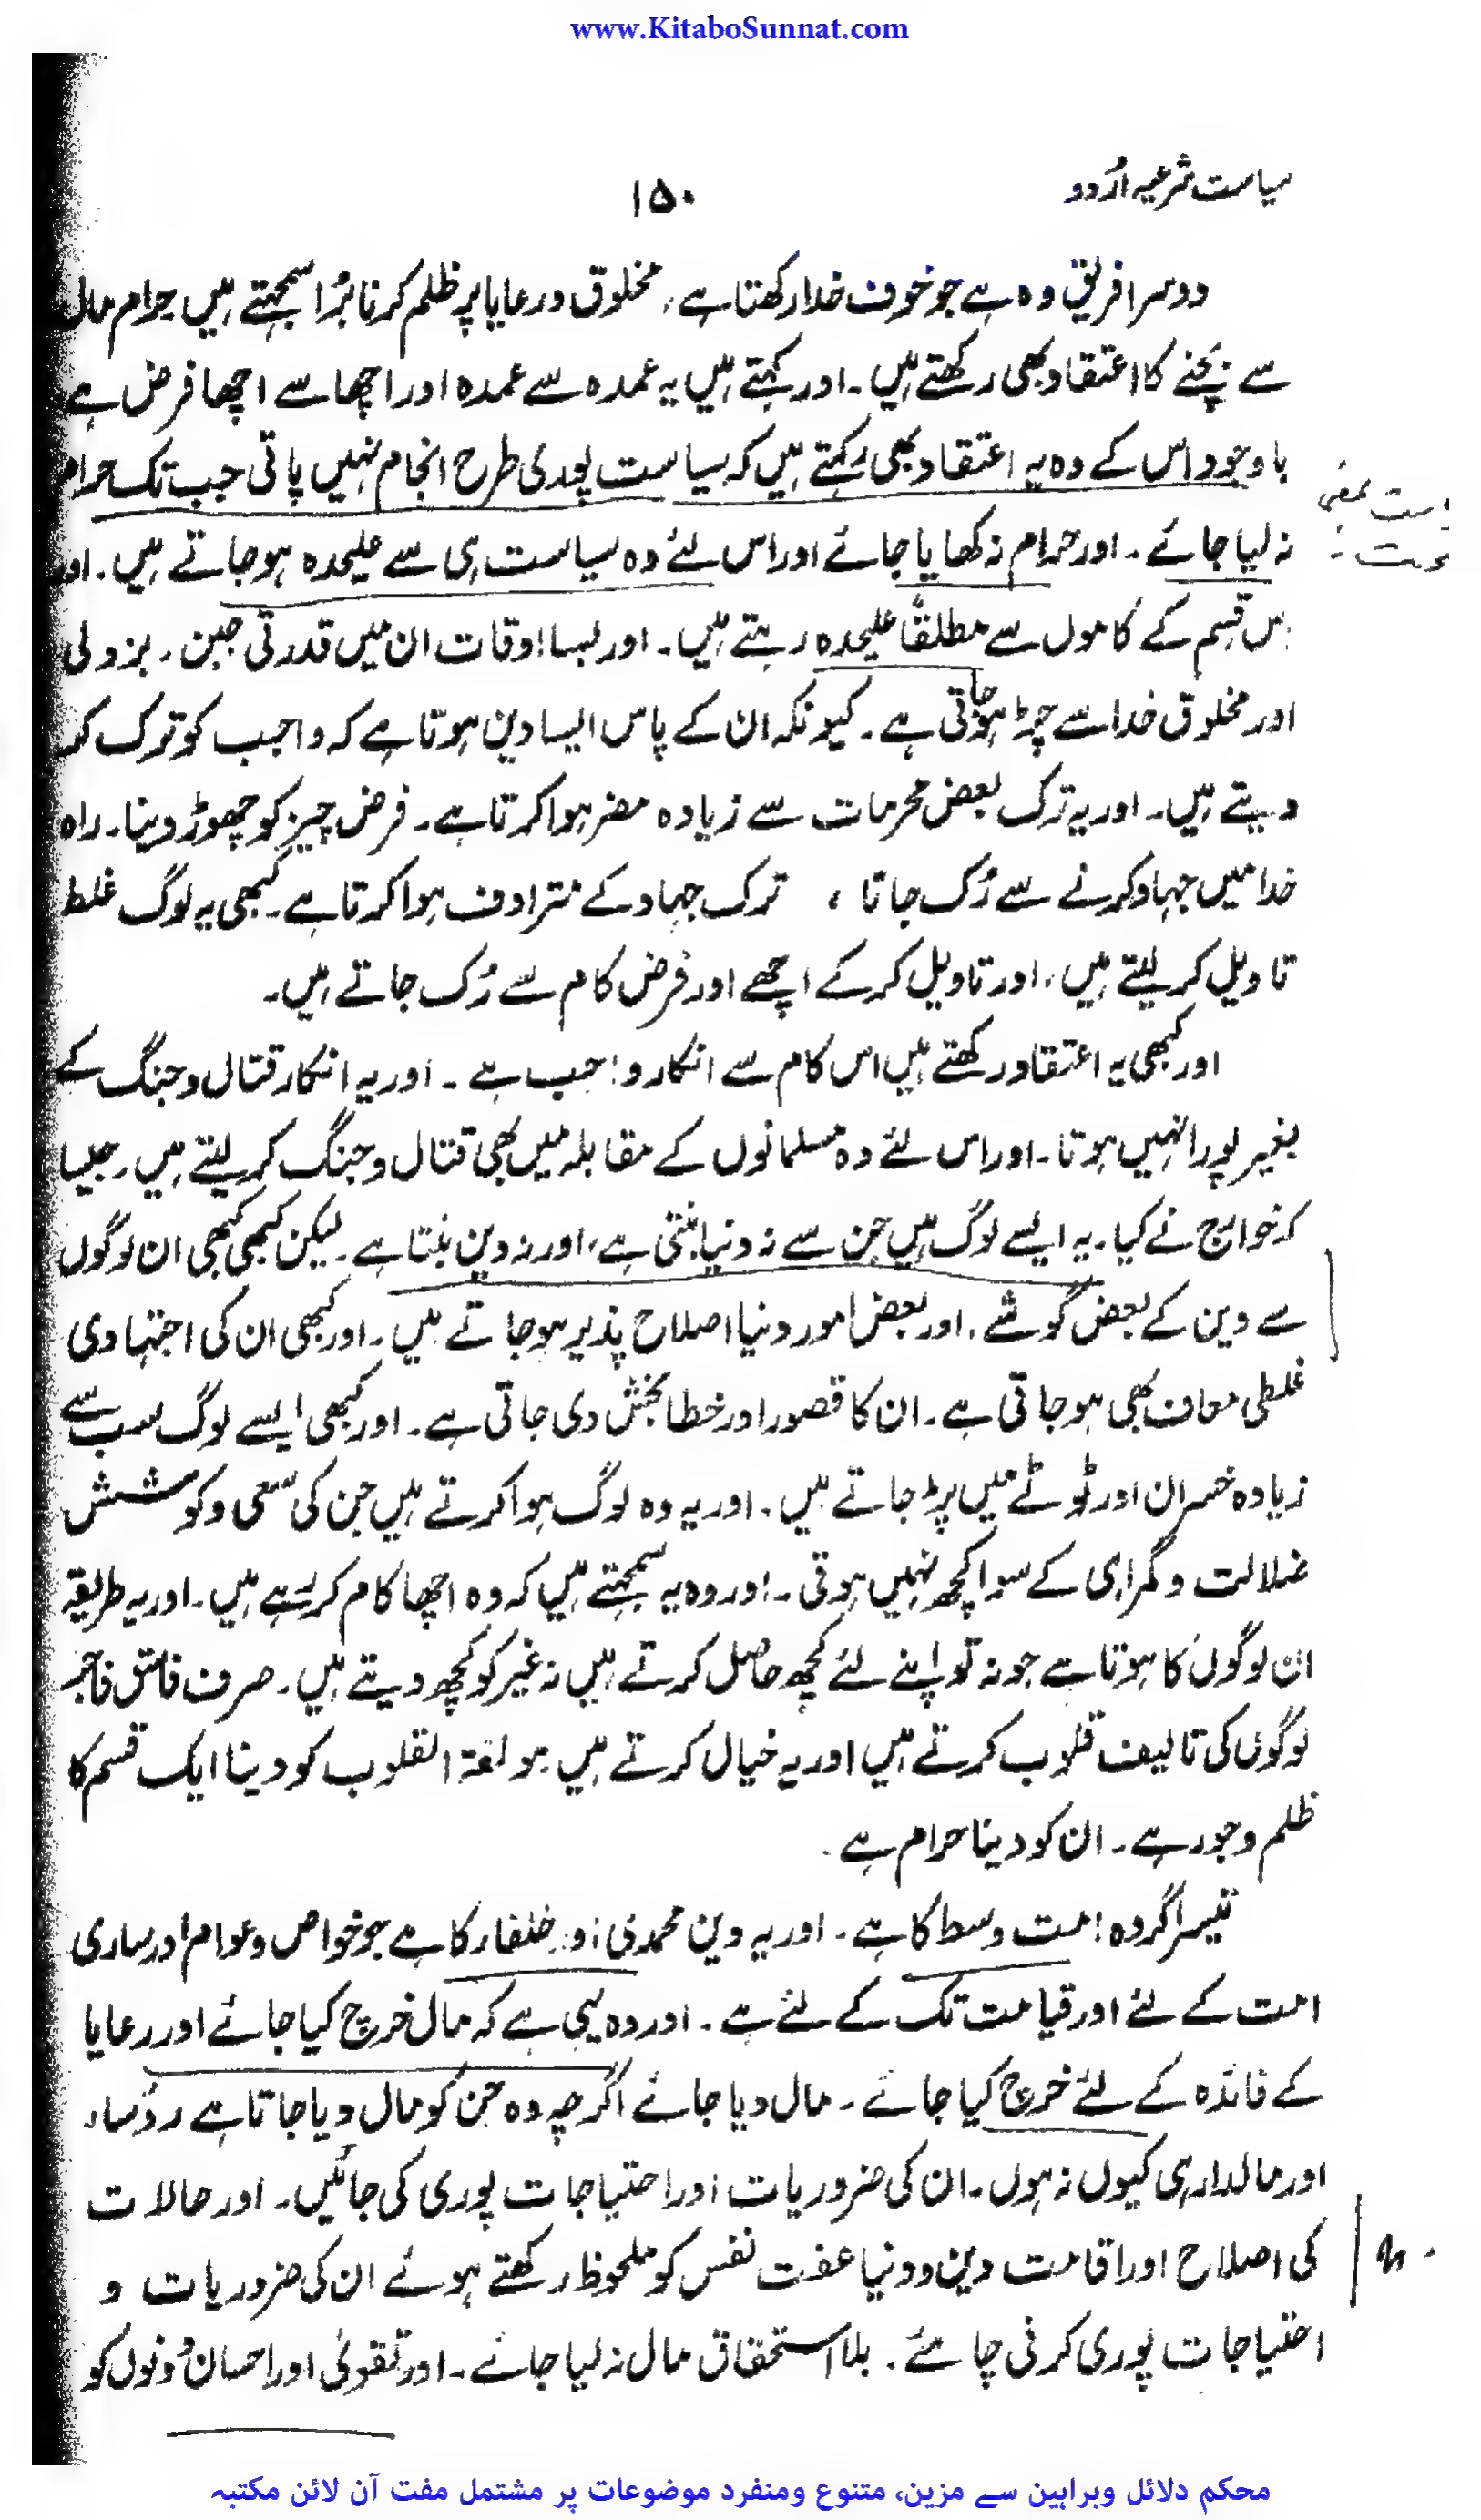 www.KitaboSunnat.com
سیاست شرعیہ اُردو
۱۵۰
دوسرا فریق وہ ہے جو خوف خدا رکھتا ہے، مخلوق و رعایا پر ظلم کرنا بُرا سمجھتے ہیں حرام مال
سے بچنے کا اعتقاد بھی رکھتے ہیں۔ اور کہتے ہیں یہ عمدہ سے عمدہ اور اچھا سے اچھا فرض ہے
باوجود اس کے وہ یہ اعتقاد بھی رکہتے ہیں کہ سیاست پوری طرح انجام نہیں پاتی جب تک حرام
نہ لیا جائے۔ اور حرام نہ کھایا جائے اور اس لئے وہ سیاست ہی سے علیحدہ ہو جاتے ہیں۔ اور
اس قسم کے کاموں سے مطلقاً علیحدہ رہتے ہیں۔ اور بسا اوقات ان میں قدرتی جبن، بزدلی
اور مخلوق خدا سے چڑ ہو جاتی ہے۔ کیونکہ ان کے پاس ایسا دین ہوتا ہے کہ واجب کو ترک کر
دیتے ہیں۔ اور یہ ترک بعض محرمات سے زیادہ مضر ہوا کرتا ہے۔ فرض چیز کو چھوڑ دینا۔ راہ
خدا میں جہاد کرنے سے رُک جانا ، ترک جہاد کے مترادف ہوا کرتا ہے۔ کبھی یہ لوگ غلط
تاویل کر لیتے ہیں، اور تاویل کر کے اچھے اور فرض کام سے رُک جاتے ہیں۔
اور کبھی یہ اعتقاد رکھتے ہیں اس کام سے انکار واجب ہے۔ اور یہ انکار قتال و جنگ کے
بغیر پورا نہیں ہوتا۔ اور اس لئے وہ مسلمانوں کے مقابلہ میں بھی قتال و جنگ کر لیتے ہیں، جیسا
کہ خوارج نے کیا۔ یہ ایسے لوگ ہیں جن سے نہ دنیا بنتی ہے، اور نہ دین بنتا ہے۔ لیکن کبھی کبھی ان لوگوں
سے دین کے بعض گوشے، اور بعض امور دنیا اصلاح پذیر ہو جاتے ہیں۔ اور کبھی ان کی اجتہادی
غلطی معاف بھی ہو جاتی ہے۔ ان کا قصور اور خطا بخش دی جاتی ہے۔ اور کبھی ایسے لوگ سب سے
زیادہ خسران اور ٹوٹے میں پڑ جاتے ہیں۔ اور یہ وہ لوگ ہوا کرتے ہیں جن کی سعی و کوشش
ضلالت و گمراہی کے سوا کچھ نہیں ہوتی۔ اور وہ یہ سمجہتے ہیں کہ وہ اچھا کام کر رہے ہیں۔ اور یہ طریقہ
ان لوگوں کا ہوتا ہے جو نہ تو اپنے لئے کچھ حاصل کرتے ہیں نہ غیر کو کچھ دیتے ہیں۔ صرف فاسق فاجر
لوگوں کی تالیف قلوب کرتے ہیں اور یہ خیال کرتے ہیں مولفۃ القلوب کو دینا ایک قسم کا
ظلم و جور ہے۔ ان کو دینا حرام ہے۔
تیسرا گروہ امت وسط کا ہے۔ اور یہ دین محمدی اور خلفاء کا ہے جو خواص و عوام اور ساری
امت کے لئے اور قیامت تک کے لئے ہے۔ اور وہ یہی ہے کہ مال خرچ کیا جائے اور رعایا
کے فائدہ کے لئے خرچ کیا جائے۔ مال دیا جائے اگرچہ وہ جن کو مال دیا جاتا ہے رؤساء
اور مالدار ہی کیوں نہ ہوں۔ ان کی ضروریات اور احتیاجات پوری کی جائیں۔ اور حالات
کی اصلاح اور اقامت دین و دنیا عفت نفس کو ملحوظ رکھتے ہوئے ان کی ضروریات و
احتیاجات پوری کرنی چاہئے۔ بلا استحقاق مال نہ لیا جائے۔ اور تقویٰ اور احسان دونوں کو
محکم دلائل وبراہین سے مزین، متنوع ومنفرد موضوعات پر مشتمل مفت آن لائن مکتبہ